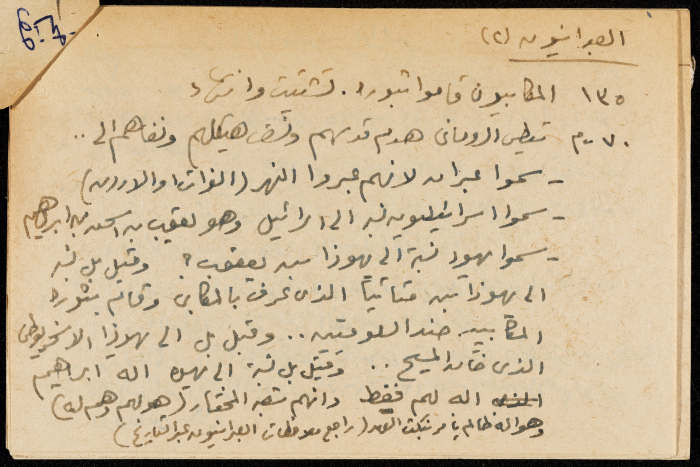 العبرانيون (٢)
١٣٥ المكابيون قاموا بثورة. تشتيت وانتهاء
٧٠ م تيطس الروماني هدم قدسهم ونسف هيكلهم ونفاهم الى ..
- سموا عبران لانهم عبروا النهر (الفرات او الاردن)
- سموا اسرائيليون نسبة الى اسرائيل وهو يعقوب بن اسحق بن ابراهيم
- سموا يهود نسبة الى يهوذا بن يعقوب ؟ وقيل بل نسبة
الى يهوذا بن متاتيا الذي عرف بالمكابي وقام بثورة
المكابيين ضد السلوقيين .. وقيل بل الى يهوذا الاسخريوطي
الذي خان المسيح .. وقيل بل نسبة الى يهوه اله ابراهيم
اله لهم فقط وانهم شعبه المختار (هو لهم وهم له)
وهو اله ظالم (راجع ملاحظات العبرانيون عبر التاريخ)